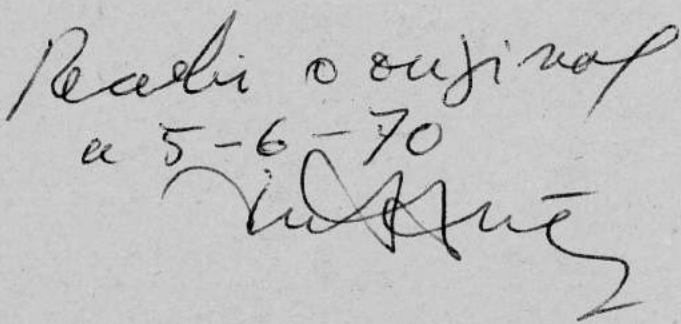 Recebi o original
a 5-6-70